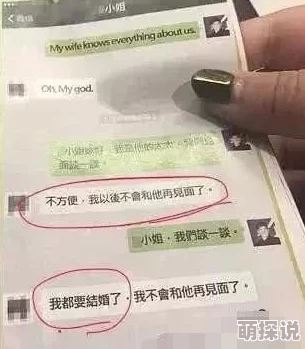 微信
小姐
My wife knows everything about us.
Oh, My god.
小姐
不方便，我以後不會和他再見面了。
小姐，我們談一談。
我都要結婚了，我不會和他再見面了。
萌探说